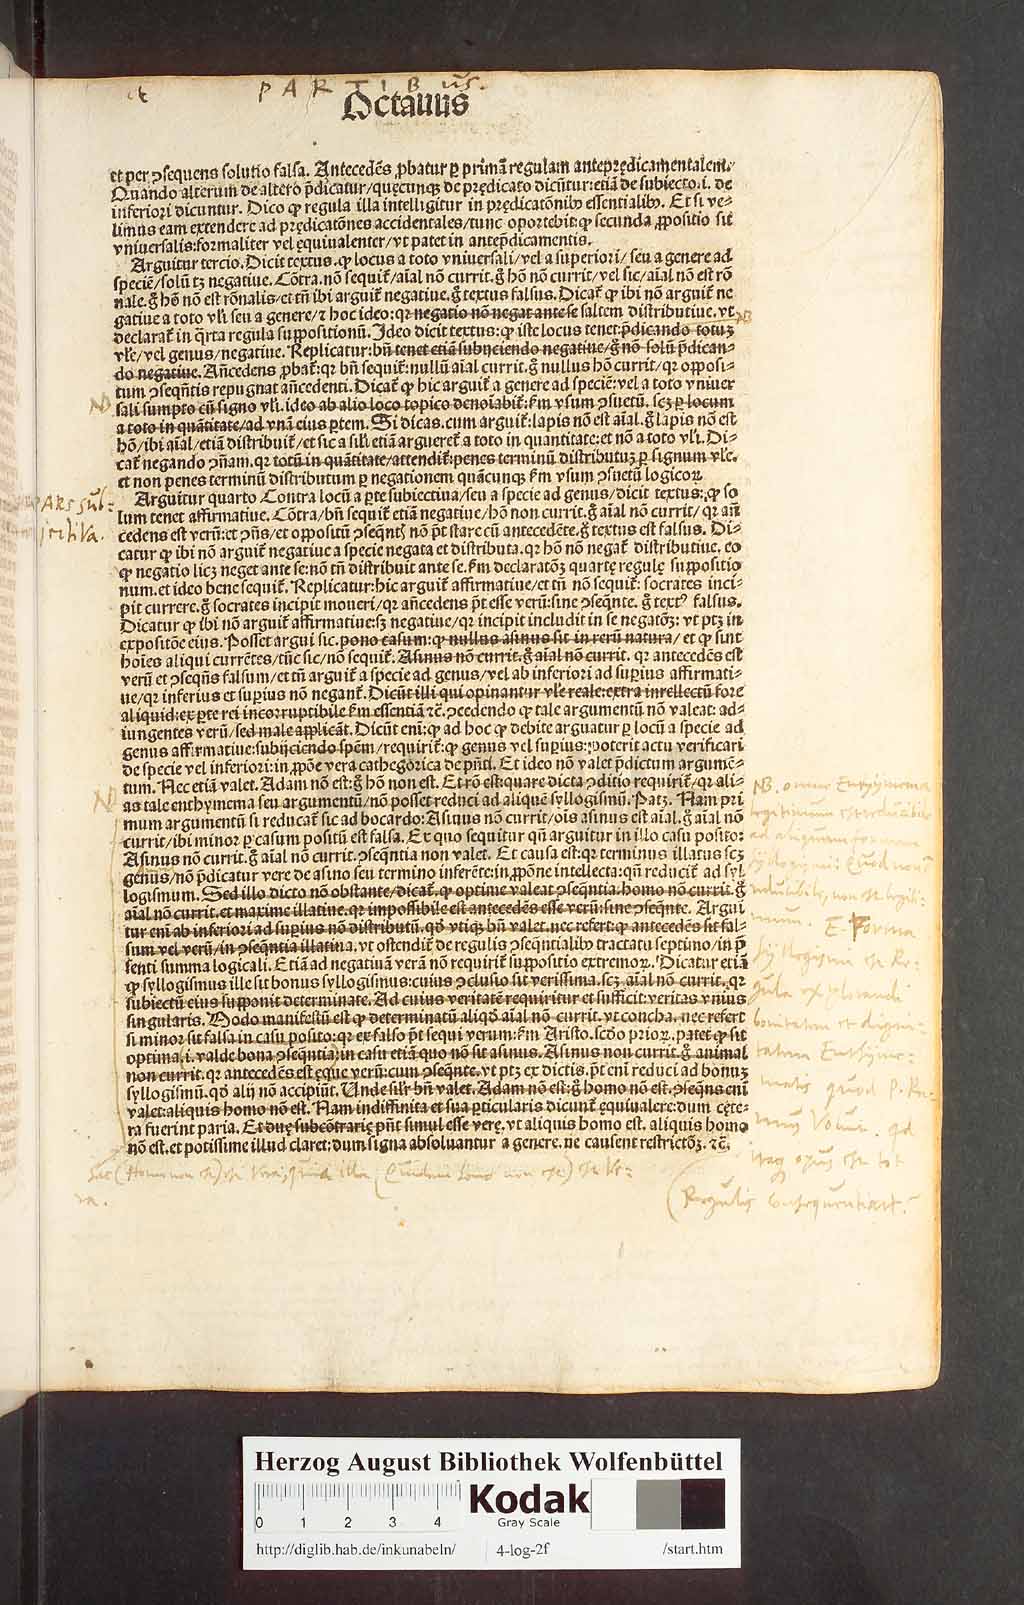 PARTIBus.
Octauus
et per ꝯsequens solutio falsa. Antecedēs ꝓbatur ꝑ primā regulam antepredicamentalem.
Quando alterum de altero p̄dicatur/quęcunqꝫ de prędicato dicūtur: etiā de subiecto. i. de
inferiori dicuntur. Dico ꝙ regula illa intelligitur in prędicatōnibꝰ essentialibꝰ. Et si ve-
limus eam extendere ad prędicatōnes accidentales/tunc oportebit: ꝙ secunda ꝓpositio sit
vniuersalis: formaliter vel ęquiualenter/vt patet in antep̄dicamentis.
Arguitur tercio. Dicit textus. ꝙ locus a toto vniuersali/vel a superiori/ seu a genere ad
speciē/solū tꝫ negatiue. Cōtra. nō sequit̃/aīal nō currit. g̊ hō nō currit/vel sic/aīal nō est rō
nale. g̊ hō nō est rōnalis/et tn̄ ibi arguit̃ negatiue. g̊ textus falsus. Dicat̃ ꝙ ibi nō arguit̃ ne
gatiue a toto vl̓i seu a genere/⁊ hoc ideo: qꝛ negatio nō negat ante se saltem distributiue. vt
declarat̃ in q̄rta regula suppositionū. Ideo dicit textus: ꝙ iste locus tenet: p̄dicando totuꝫ
vl̓e/vel genus/negatiue. Replicatur: bn̄ tenet etiā subijciendo negatiue/g̊ nō solū p̄dican-
do negatiue. Añcedens ꝓbat̃: qꝛ bn̄ sequit̃: nullū aīal currit. g̊ nullus hō currit/ qꝛ opposi-
tum ꝯseqn̄tis repugnat añcedenti. Dicat̃ ꝙ hic arguit̃ a genere ad speciē: vel a toto vniuer
sali sumpto cū signo vl̓i. ideo ab alio loco topico denoīabit̃: s̄m vsum ꝯsuetū. scꝫ ꝑ locum
a toto in quātitate/ad vnā eius ꝑtem. Si dicas. cum arguit̃: lapis nō est aīal. g̊ lapis nō est
hō/ibi aīal/etiā distribuit̃/et sic a sil̓i etiā argueret̃ a toto in quantitate: et nō a toto vl̓i. Di-
cat̃ negando ꝯn̄am. qꝛ totū in quātitate/attendit̃: penes terminū distributuꝫ ꝑ signum vl̓e.
et non penes terminū distributum ꝑ negationem quācunqꝫ s̄m vsum ꝯsuetū logicoꝝ.
Arguitur quarto Contra locū a ꝑte subiectiua/seu a specie ad genus/dicit textus: ꝙ so
lum tenet affirmatiue. Cōtra/bn̄ sequit̃ etiā negatiue/hō non currit. g̊ aīal nō currit/ qꝛ añ
cedens est verū: et ꝯn̄s/et oppositū ꝯseqn̄tꝭ nō p̄t stare cū antecedēte. g̊ textus est falsus. Di-
catur ꝙ ibi nō arguit̃ negatiue a specie negata et distributa. qꝛ hō nō negat̃ distributiue. eo
ꝙ negatio licꝫ neget ante se: nō tn̄ distribuit ante se. s̄m declaratōꝫ quartę regulę suppositio
num. et ideo bene sequit̃. Replicatur: hic arguit̃ affirmatiue/et tn̄ nō sequit̃: socrates inci-
pit currere. g̊ socrates incipit moueri/qꝛ añcedens p̄t esse verū: sine ꝯseqn̄te. g̊ textꝰ falsus.
Dicatur ꝙ ibi nō arguit̃ affirmatiue: sꝫ negatiue/qꝛ incipit includit in se negatōꝫ: vt ptꝫ in
expositōe eius. Posset argui sic. pono casum: ꝙ nullus asinus sit in rerū natura/ et ꝙ sint
hoīes aliqui currētes/tūc sic/nō sequit̃. Asinus nō currit. g̊ aīal nō currit. qꝛ antecedēs est
verū et ꝯseqn̄s falsum/et tn̄ arguit̃ a specie ad genus/vel ab inferiori ad supius affirmati-
ue/qꝛ inferius et supius nō negant̃. Dicūt illi qui opinantur vl̓e reale: extra intellectū fore
aliquid: ex ꝑte rei incorruptibile s̄m essentiā ⁊c̄. ꝯcedendo ꝙ tale argumentū nō valeat: ad-
iungentes verū/sed male applicāt. Dicūt eni: ꝙ ad hoc ꝙ debite arguatur ꝑ locū a specie ad
genus affirmatiue: subijciendo spēm/requirit̃: ꝙ genus vel supius: poterit actu verificari
de specie vel inferiori: in ꝓpōne vera cathegorica de pn̄ti. Et ideo nō valet p̄dictum argumē-
tum. Nec etiā valet. Adam nō est: g̊ hō non est. Et rō est: quare dicta ꝯditio requirit̃/qꝛ ali-
as tale enthymema seu argumentū/nō posset reduci ad aliquē syllogismū. Patꝫ. Nam pri
mum argumentū si reducat̃ sic ad bocardo: Asinus nō currit/oīs asinus est aīal. g̊ aīal nō
currit/ibi minor ꝑ casum positū est falsa. Ex quo sequitur qn̄ arguitur in illo casu posito:
Asinus nō currit. g̊ aīal nō currit. ꝯseqn̄tia non valet. Et causa est: qꝛ terminus illatus scꝫ
genus/nō p̄dicatur vere de asino seu termino inferēte: in ꝓpōne intellecta: qn̄ reducit̃ ad syl
logismum. Sed illo dicto nō obstante/dicat̃. ꝙ optime valeat ꝯseqn̄tia. homo nō currit. g̊
aīal nō currit. et maxime illatiue. qꝛ impossibile est antecedēs esse verū: sine ꝯseqn̄te. Argui
tur eni ab inferiori ad supius nō distributū. qd̓ vtiqꝫ bn̄ valet. nec refert: ꝙ antecedēs sit fal-
sum vel verū/in ꝯseqn̄tia illatiua. vt ostendit̃ de regulis ꝯseqn̄tialibꝰ tractatu septimo/in p̄
senti summa logicali. Etiā ad negatiuā verā nō requirit̃ suppositio extremoꝝ. Dicatur etiā
ꝙ syllogismus ille sit bonus syllogismus: cuius ꝯclusio sit verissima. scꝫ. aīal nō currit. qꝛ
subiectū eius supponit determinate. Ad cuius veritatē requiritur et sufficit: veritas vnius
singularis. Modo manifestū est ꝙ determinatū aliqd̓ aīal nō currit. vt concha. nec refert
si minor sit falsa in casu posito: qꝛ ex falso p̄t sequi verum: s̄m Aristo. scd̓o prioꝝ. patet ꝙ sit
optima. i. valde bona ꝯseqn̄tia: in casu etiā quo nō sit asinus. Asinus non currit. g̊ animal
non currit. qꝛ antecedēs est ęque verū: cum ꝯseqn̄te. vt ptꝫ ex dictis. p̄t eni reduci ad bonuꝫ
syllogismū. qd̓ alij nō accipiūt. Unde sil̓r bn̄ valet. Adam nō est: g̊ homo nō est. ꝯseqn̄s eni
valet: aliquis homo nō est. Nam indiffinita et sua ꝑticularis dicunt̃ ęquiualere: dum cęte-
ra fuerint paria. Et duę subcōtrarię pn̄t simul esse verę. vt aliquis homo est. aliquis homo
nō est. et potissime illud claret: dum signa absoluantur a genere. ne causent restrictōꝫ. ⁊c̄.
NB
PARS sub-
jectiva.
NB. omne Enthymema
syllogismi: Quod non
E. Forma
Syllogismi est Re-
gula explorandi
bonitatem et digni-
tatem Enthyme-
matis quod P. Ra-
mus Voluit.
opus est tot
(Regulis consequentiar.
Herzog August Bibliothek Wolfenbüttel
0 1 2 3 4
Kodak
Gray Scale
http://diglib.hab.de/inkunabeln/ 4-log-2f /start.htm